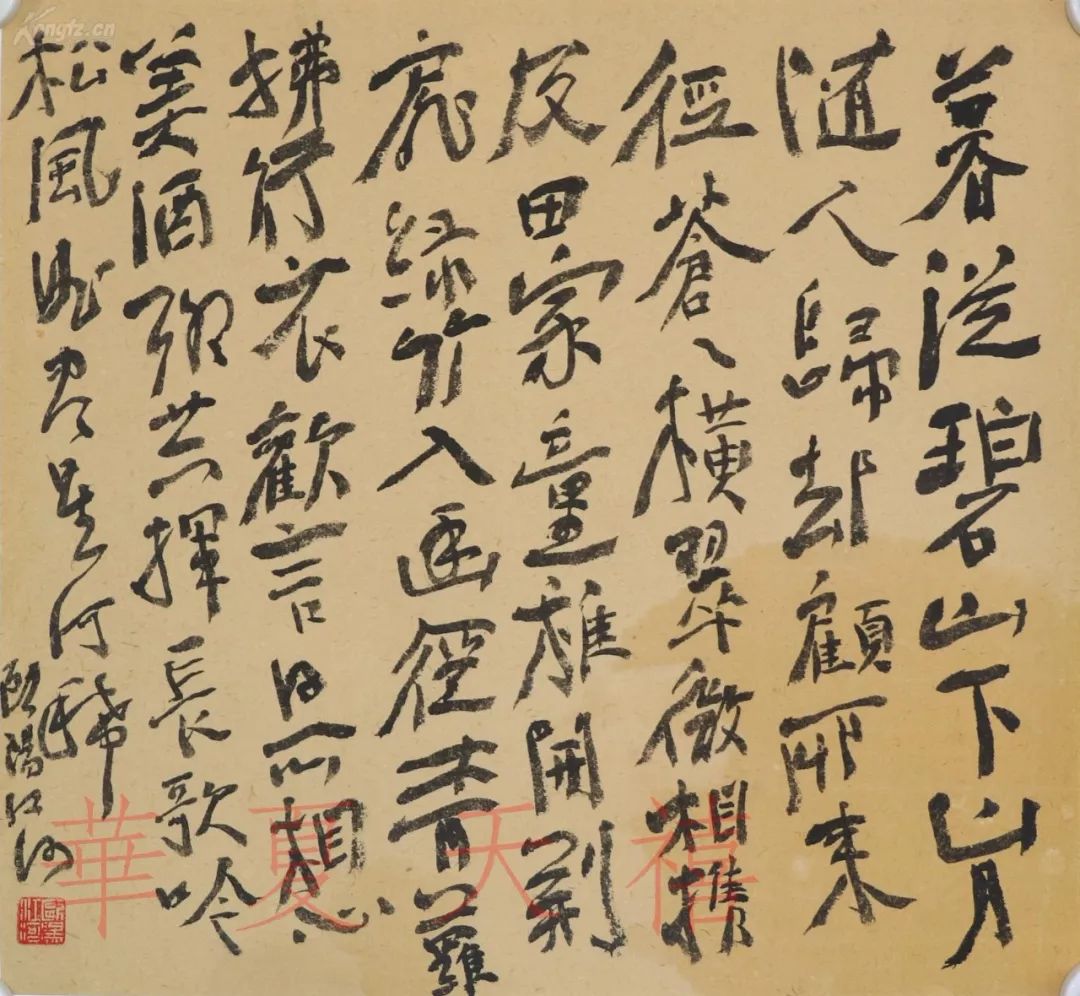 暮從碧山下山月
隨人歸却顧所來
徑蒼〻橫翠微相攜
及田家童稚開荆
扉綠竹入幽徑青蘿
拂行衣歡言得所憩
美酒聊共揮長歌吟
松風曲盡星河稀
歐陽江河
歐陽江河
華夏天禧
Kongfz.cn